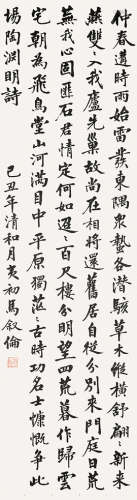 仲春遘時雨始雷發東隅衆蟄各潛駭草木縱橫舒翩〻新來
燕雙〻入我廬先巢故尚在相將還舊居自從分別來門庭日荒
蕪我心固匪石君情定何如迢〻百尺樓分明望四荒暮作歸雲
宅朝為飛鳥堂山河滿目中平原獨茫〻古時功名士慷慨爭此
場陶淵明詩
己丑年清和月亥初馬叙倫